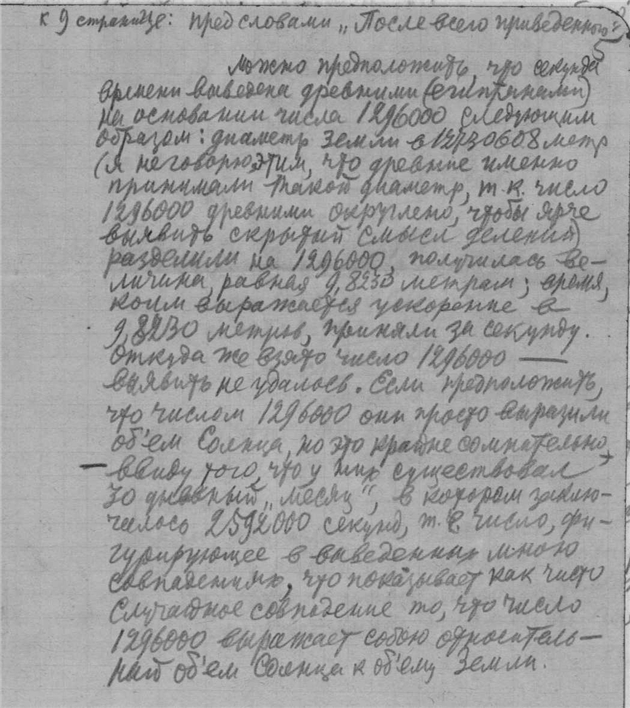 к 9 странице: пред словами „После всего приведенного"
Можно предположить, что секунда
времени выведена древними (египтянами)
на основании числа 1296000 следующим
образом: диаметр Земли в 12730608 метр
(я не говорю этим, что древние именно
принимали такой диаметр, т.к. число
1296000 древними округлено, чтобы ярче
выявить скрытый смысл деления)
разделили на 1296000, получилась ве-
личина, равная 9,8230 метрам; время,
коим выражается ускорение в
9,8230 метров, приняли за секунду.
Откуда же взято число 1296000 —
выявить не удалось. Если предположить,
что числом 1296000 они просто выразили
об'ем Солнца, но это крайне сомнительно,
— ввиду того, что у них существовал
30 дневный „месяц", в котором заклю-
чалось 2592000 секунд, т.е. число, фи-
гурирующее в выведенных мною
совпадениях, что показывает как чисто
случайное совпадение то, что число
1296000 выражает собою относитель-
ный об'ем Солнца к об'ему Земли.